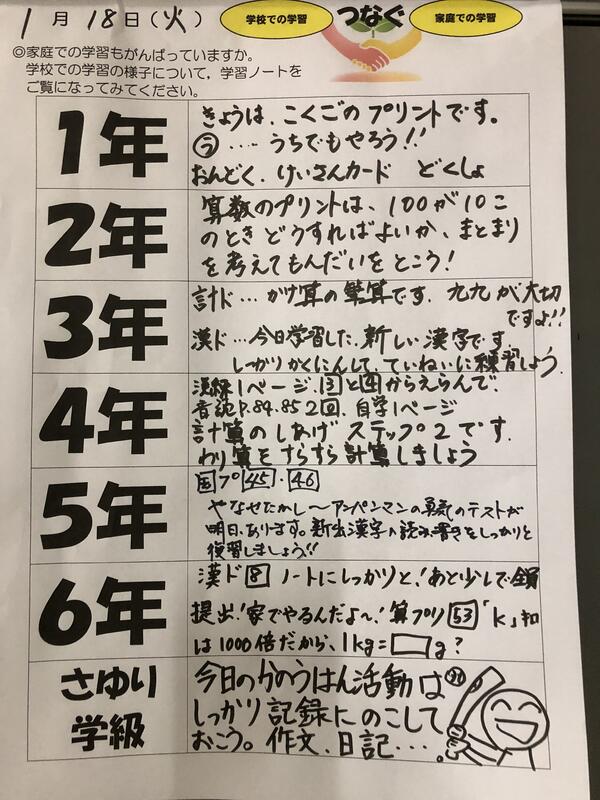 1月18日(火)
学校での学習 つなぐ 家庭での学習
◎家庭での学習もがんばっていますか。
学校での学習の様子について,学習ノートを
ご覧になってみてください。
1年
きょうは、こくごのプリントです。
㋒‥‥うちでもやろう!!
おんどく、けいさんカード どくしょ
2年
算数のプリントは、100が10こ
のときどうすればよいか、まとまり
を考えてもんだいをとこう!
3年
計ド…かけ算の筆算です。九九が大切
ですよ!!
漢ド…今日学習した、新しい漢字です。
しっかりかくにんして、ていねいに練習しよう。
4年
漢練1ページ 13と14からえらんで、
音読P.84.85 2回、自学1ページ
計算のしあげ ステップ2です。
わり算をすらすら計算しましょう
5年
国プ45・46
やなせたかし〜アンパンマンの勇気のテストが
明日、あります。新出漢字の読み書きをしっかりと
復習しましょう!!
6年
漢ド8 ノートにしっかりと、!あと少しで全員
提出!家でやるんだよ〜、!算プリ53「k」
は1000倍だから、1kg=□g?
さゆり
学級
今日のかのうはん活動は
しっかり記録にのこして
おこう。作文、日記‥‥。